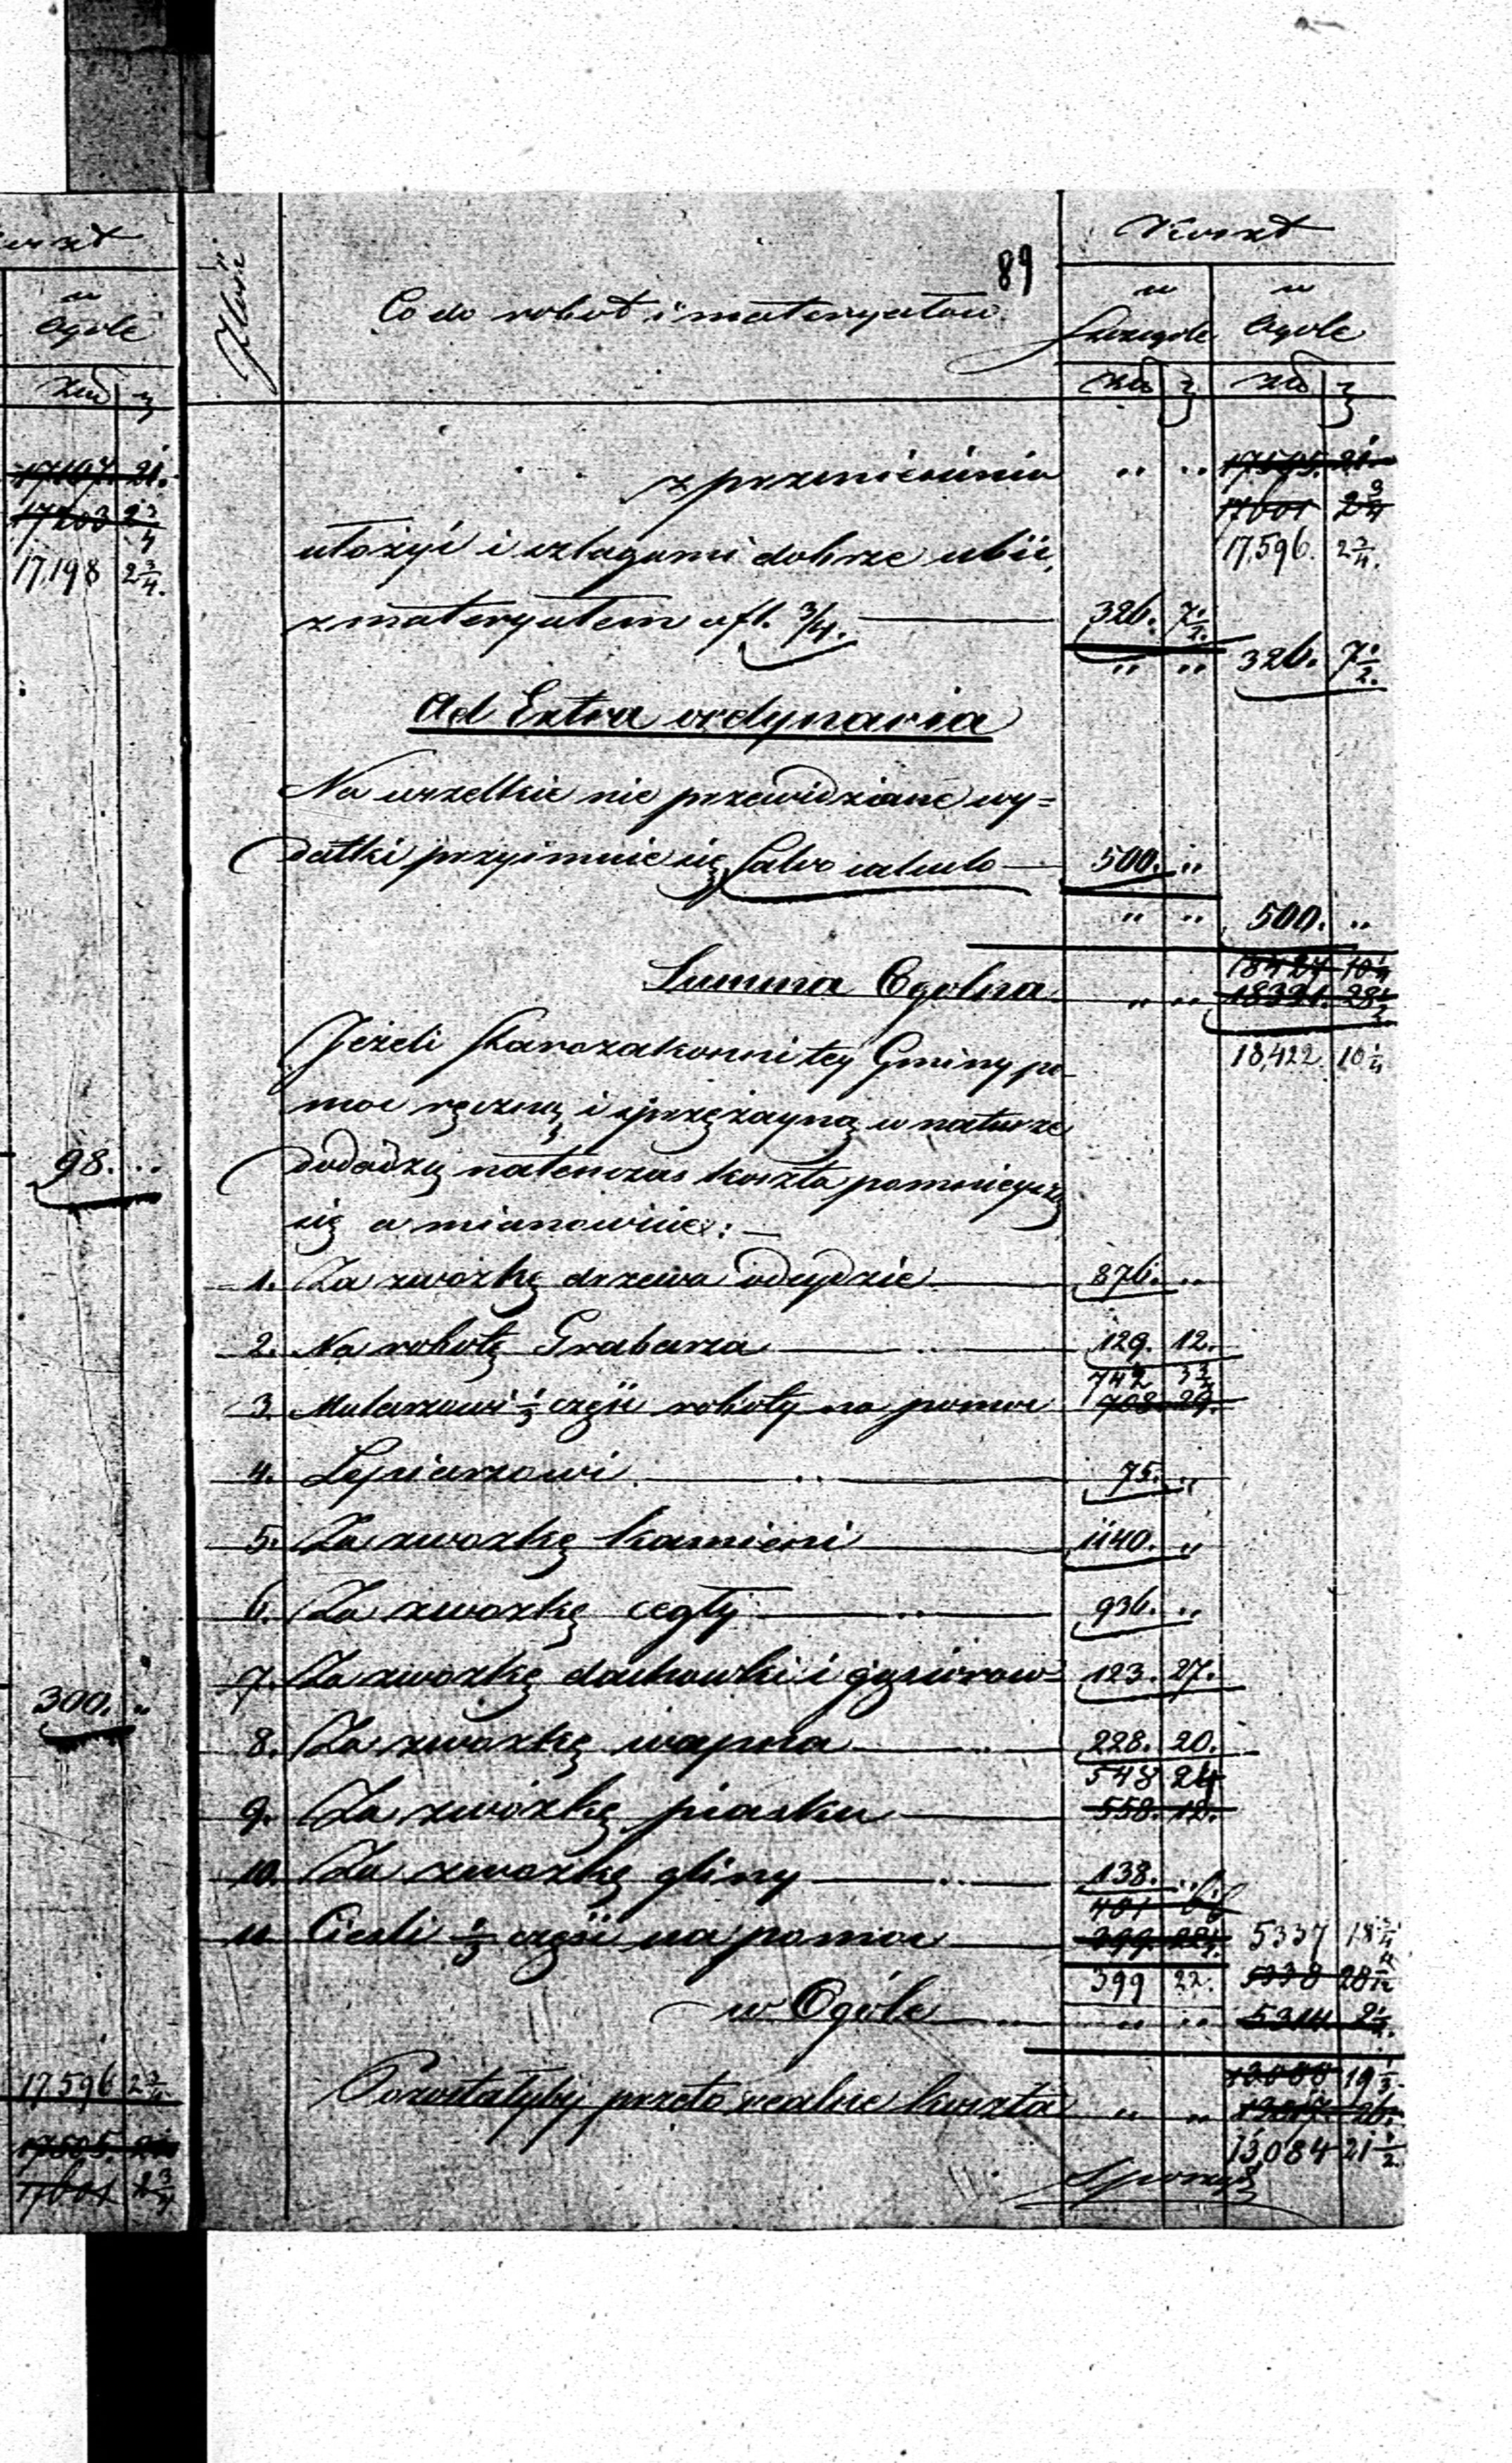 Koszt
w
Ogóle
złp
17197. 21.
17203 2 3/4
17,198 2 3/4.
98. ..
300. ..
17.596 2 3/4
17595. 21
17601 2 3/4
89
Ilość
Co do robot i materyałów
Koszt
w Szczególe
w Ogóle
złp gr złp gr
z przeniesienia .. .. 17595. 21
17601 2 3/4
17,596. 2 3/4.
ułożyć i szlagami dobrze ubić,
z materyałem a fl. 3/4. 326. 7 1/2.
.. .. 326. 7 1/2.
Ad Extra ordynaria
Na wszelkie nie przewidziane wy=
datki przyimuie się Salvo calculo 500. ..
.. .. 500. ..
Summa Ogolna .. .. 18427 10 1/4
18321. 28 1/2
18,422. 10 1/4
Jeżeli Starozakonni tey Gminy po
moc ręczną i sprzężayną w naturze
dodadzą natenczas koszta pomnieyszą
się a mianowicie:
1. Za zwózkę drzewa odeydzie 876. ..
2. Na robotę Grabarza 129. 12.
742 3 3/4
3. Mularzowi 1/3 części roboty na pomoc 708. 29.
4. Lepiarzowi 75. ..
5. Za zwózkę kamieni 1140. ..
6. Za zwózkę cegły 936. ..
7. Za zwózkę dachowki i gąsiorow 123. 27.
8. Za zwózkę wapna 228. 20.
548 24
9. Za zwózkę piasku 558. 12.
10. Za zwózkę gliny 138. ..
401
11. Cieśli 1/3 części na pomoc 399 5337 18 3/4
399 22. 5338 28
w Ogóle .. .. 5314 2 1/2.
Pozostałyby przeto realne koszta .. .. 13088 19 1/3
26.
13,084 21 1/2